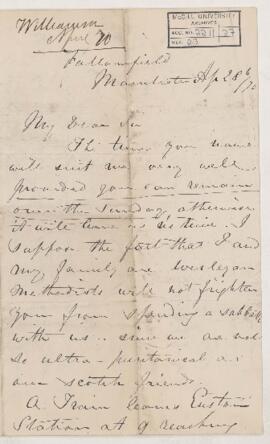 Williamson
April 70
McGILL UNIVERSITY
ARCHIVES
ACC. NO. 2211 27
REF. 23
Fallowfield
Manchester Ap 28th/70
My Dear Sir
The time you name
will suit me very well
provided you can remain
over the Sunday otherwise
it will leave us
I
suppose the fact that I and
my family are Wesleyan
Methodists will not frighten
you from spending a sabbath
with us - since we are not
so ultra-puritanical as
our Scotch friends.
A Train leaves Euston
Station at 9 reaching